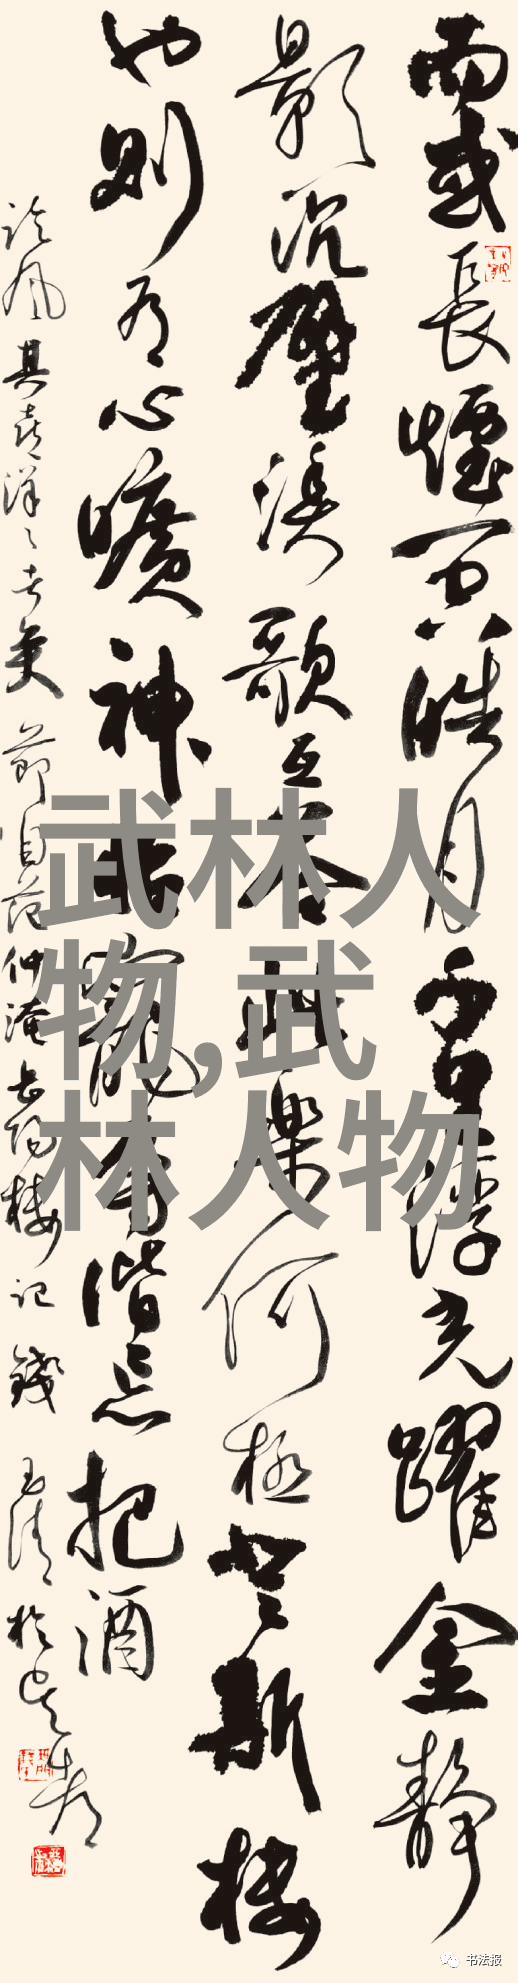 而或長煙一空皓月千里浮光躍金静
影沉璧漁歌互答此樂何極登斯樓
也则有心曠神怡寵辱偕忘把酒
臨風其喜洋洋者矣 節自范仲淹岳陽樓記 錢玉清於
武林人
物,武
林人物
书法报